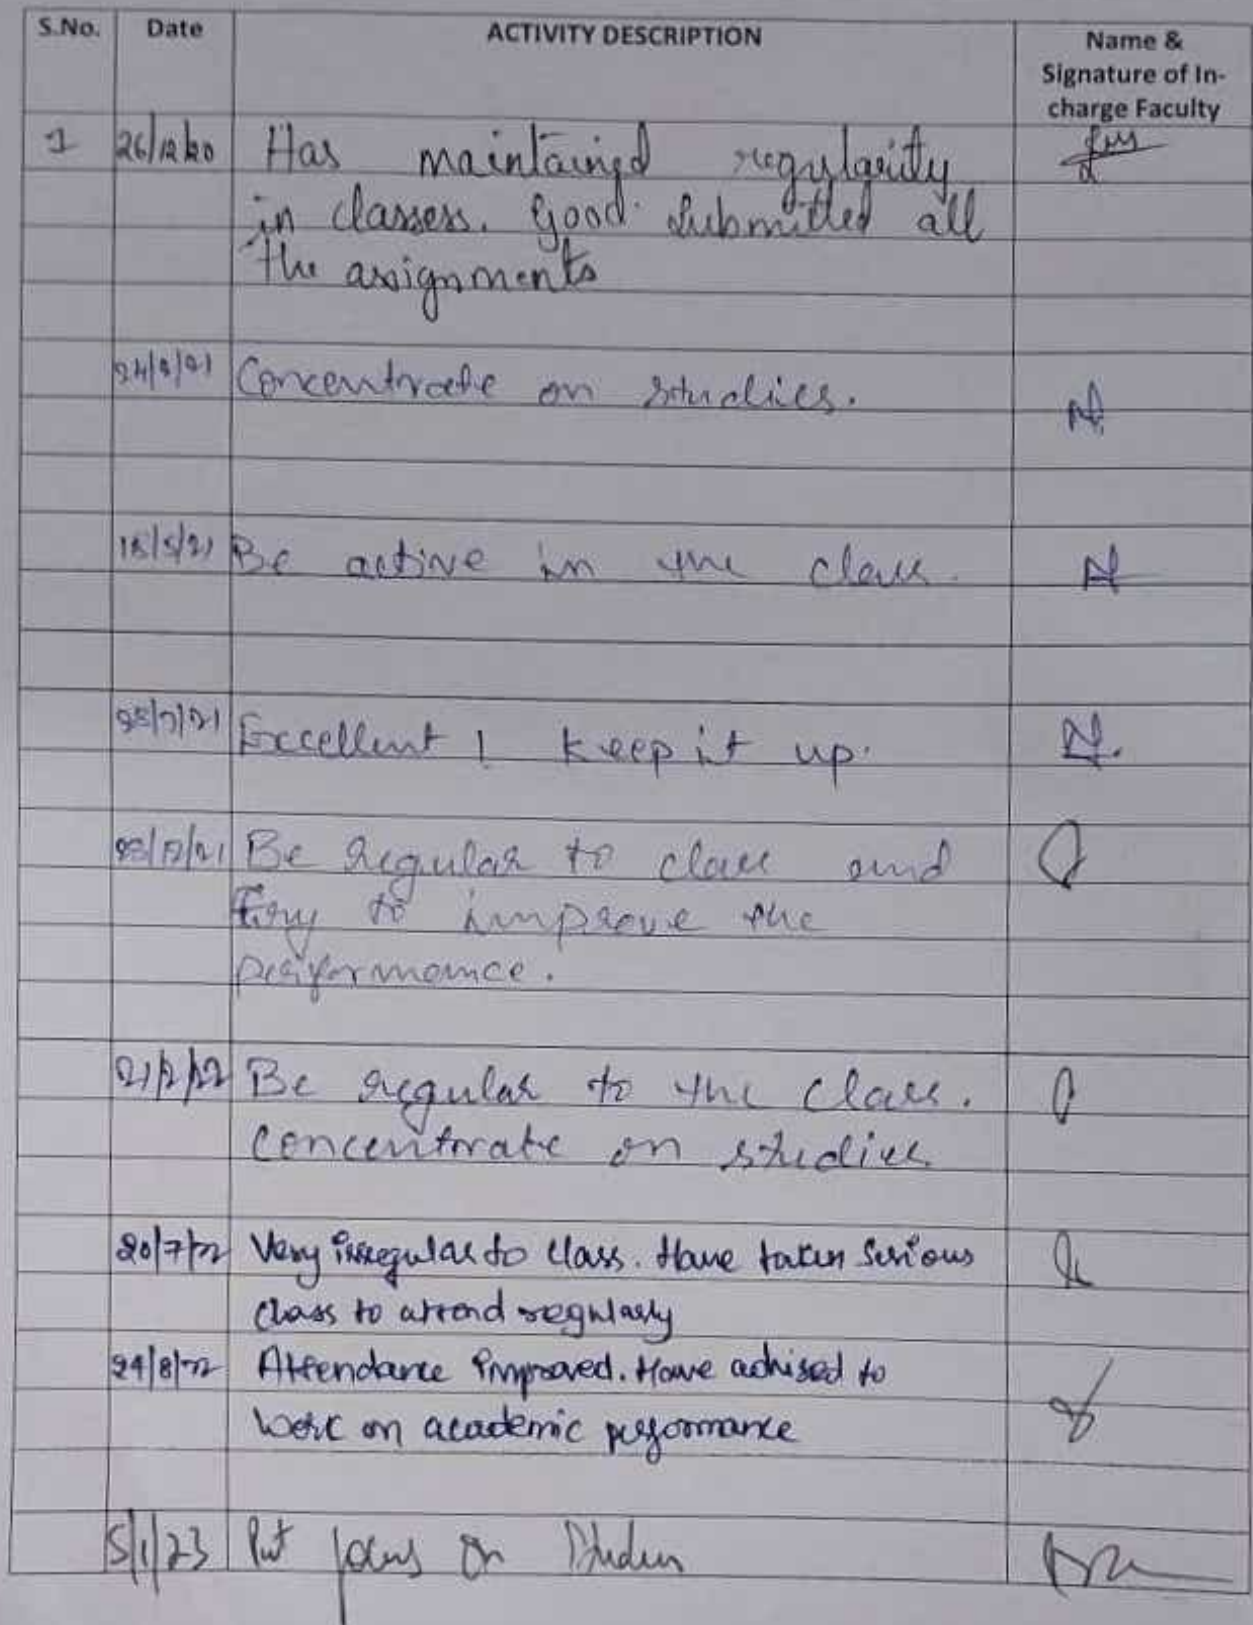 S.No. Date ACTIVITY DESCRIPTION Name &
Signature of In-
charge Faculty
1 26/12/20 Has maintained regularity
in classess. Good. Submitted all
the assignments
Concentrate on studies.
18/5/21 Be active in the class.
Excellent ! Keep it up.
Be regular to class and
Try to improve the
performance.
21/2/22 Be regular to the class.
Concentrate on studies
20/7/22 Very irregular to class. Have taken serious
class to attend regularly
24/8/22 Attendance improved. Have advised to
work on academic performance
5/1/23 Put focus on